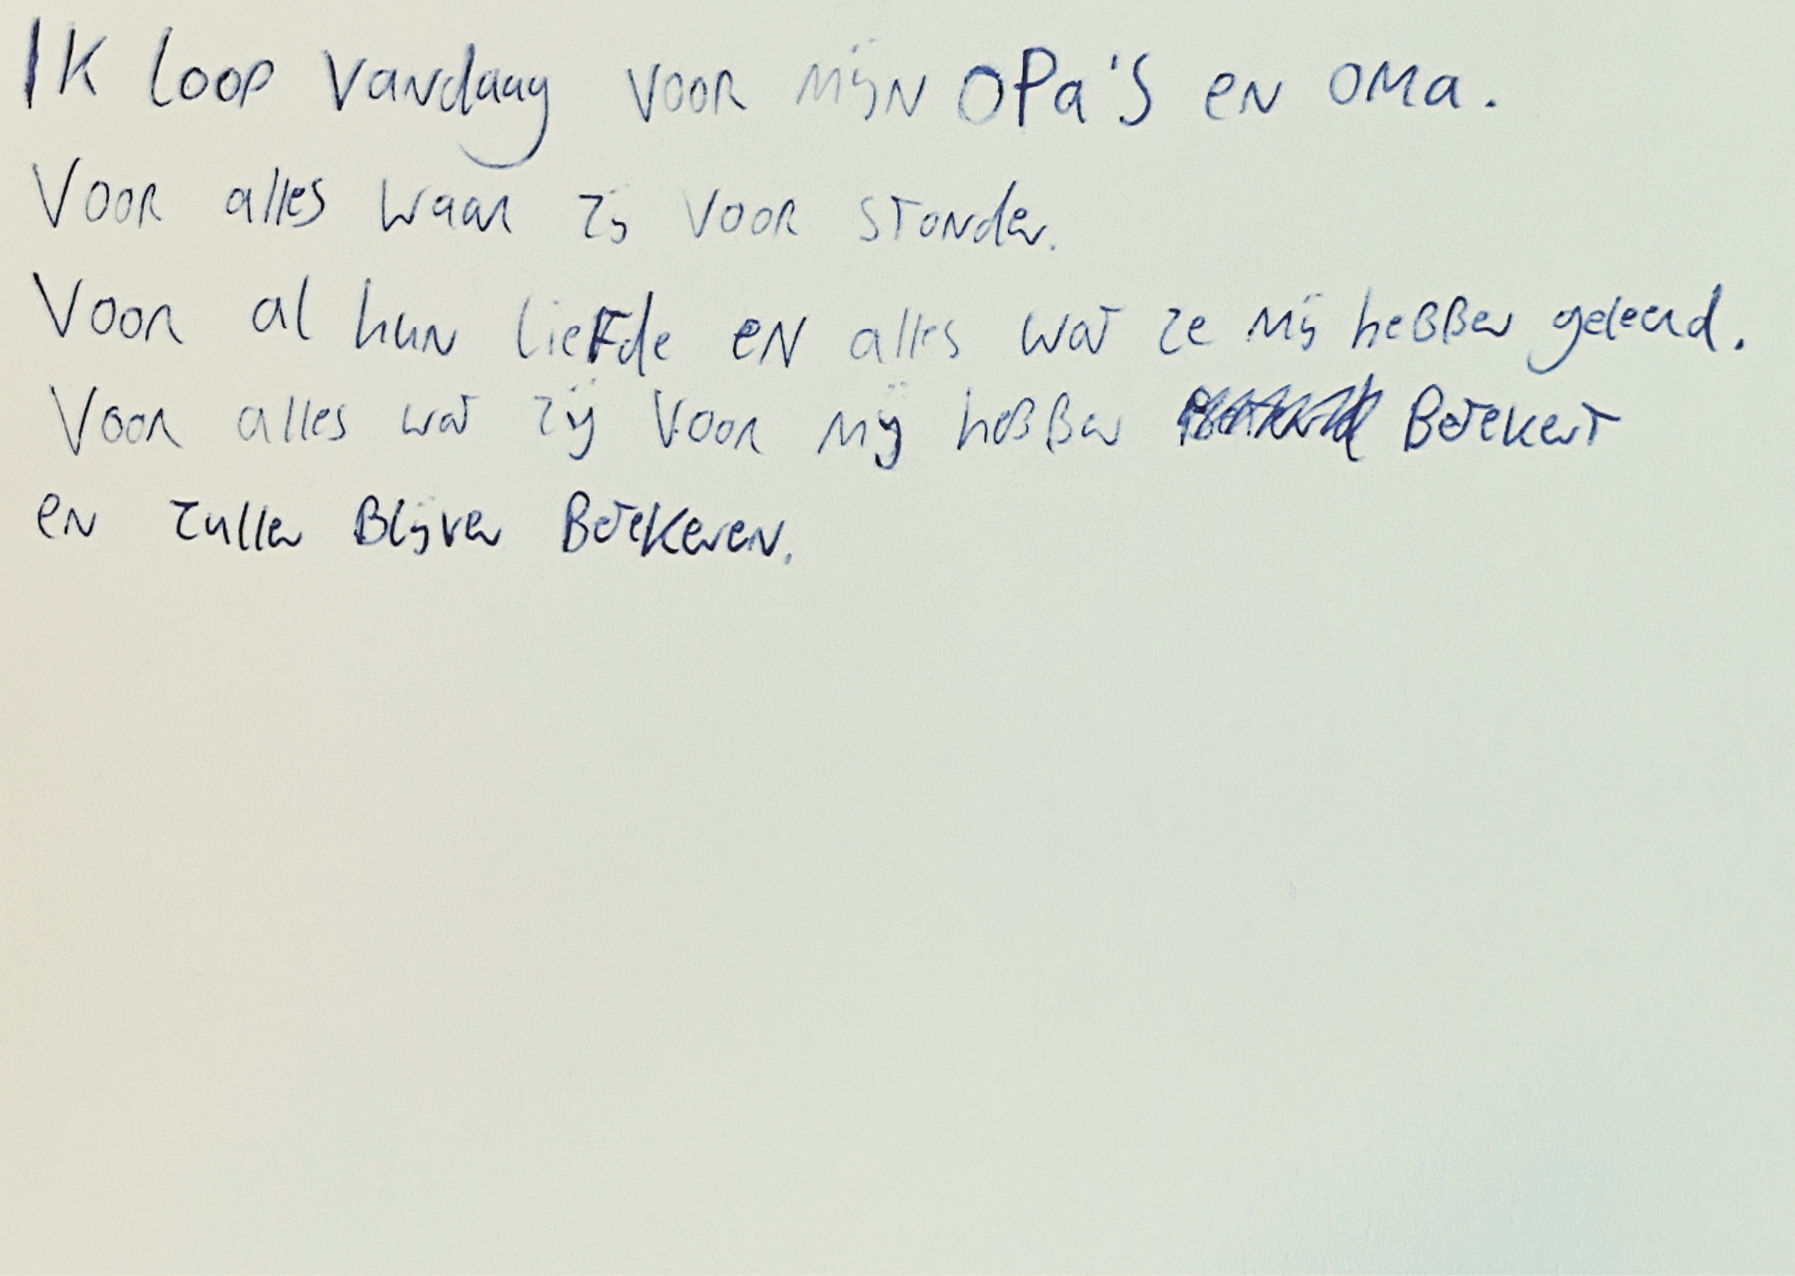 Ik loop vandaag voor mijn opa's en oma.
Voor alles waar zij voor stonden.
Voor al hun liefde en alles wat ze mij hebben geleerd.
Voor alles wat zij voor mij hebben betekent
en zullen blijven betekenen.